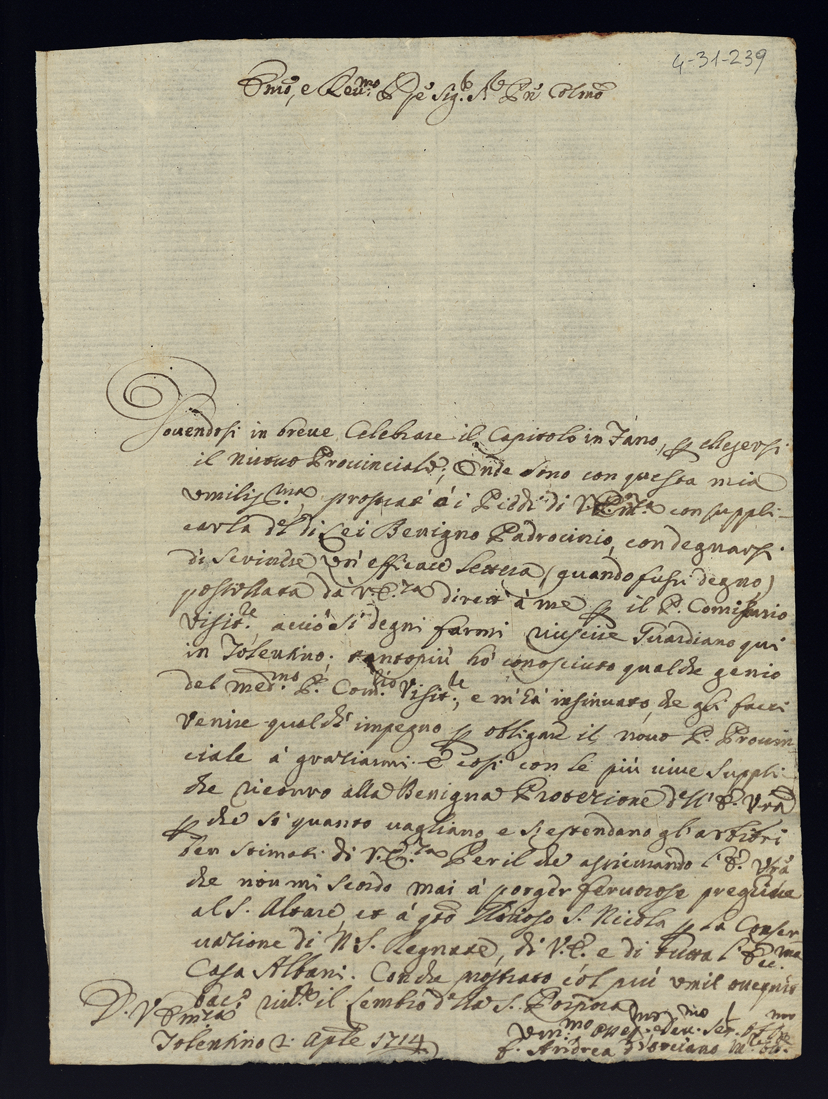 4-31-239
Emo, e Reu.mo P̃pe Sig.r Sig.r Pñ Colmo
Douendosi in breue Celebrare il Capitolo in Fano, ꝑ elegersi
il nuouo Prouinciale; Onde sono con questa mia
vmiliss.ma prostrat' à i Piedi di V. Em.za con suppli-
carla del di Lei Benigno Padrocinio, con degnarsi
di Seriuere un' efficace Lettera (quando fussi degno)
postillata dà V. E.za dirett' à me ꝑ il P. Comissario
Visit.re acciò si degni farmi riuscire Guardiano qui
in Tolentino; tantopiù hò conosciuto qualche genio
del med.mo P. Com.rio Visit.re, e m'hà insinuato, che gli facci
venire qualch' impegno ꝑ obligare il nouo P. Prouin-
ciale à graziarmi. E così con le più viue suppli-
che ricorro alla Benigna Protezione dell' E. Vrã
ꝑ che sò quanto vagliano e si estendano gl' arbitri
ben stimati di V. E.za Per il che assicurando l' E. Vrã
che non mi scordo mai à porger feruorose preghiere
al S. Altare, et à qto Glorioso S. Nicola ꝑ la Conser
uazione di N. S. Regnante, di V. E. e di tutta l' Ecc.ma
Casa Albani. Con che prostrato col più vmil ossequio
bacio il Lembo della S. Porpora
D. V. Em.za
Tolentino 2. Aple 1714
Vmi.mo Deu. Ser.
f. Andrea d'Orciano